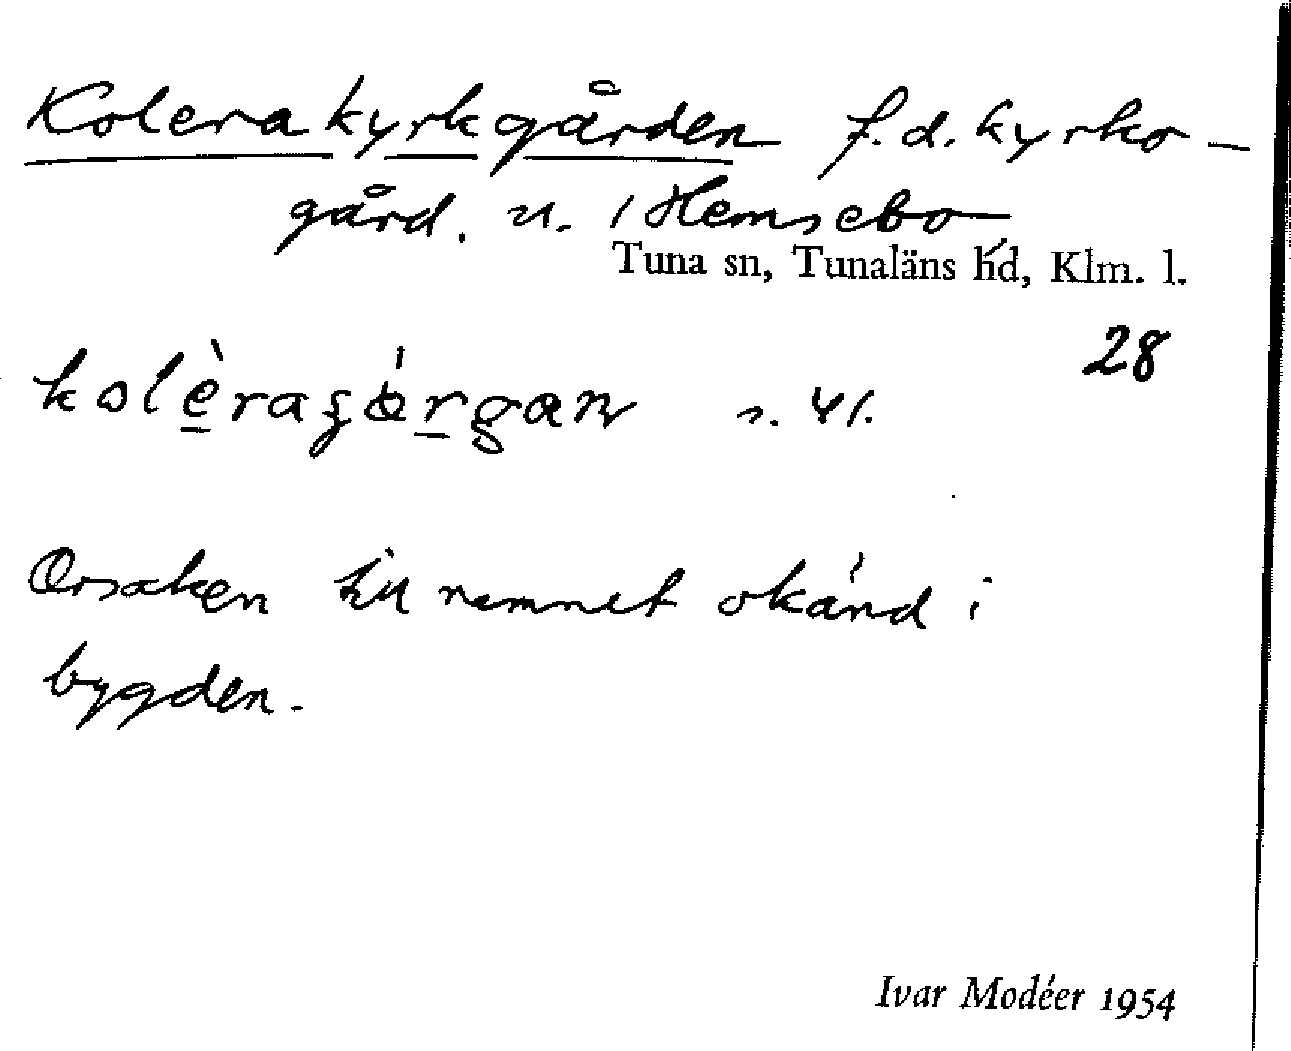 Kolerakyrkgården f.d. kyrko-
gård. n. 1 Hemsebo
Tuna sn, Tunaläns hd, Klm. l.
28
s. 41.
Orsaken till namnet okänd i
bygden.
Ivar Modéer 1954